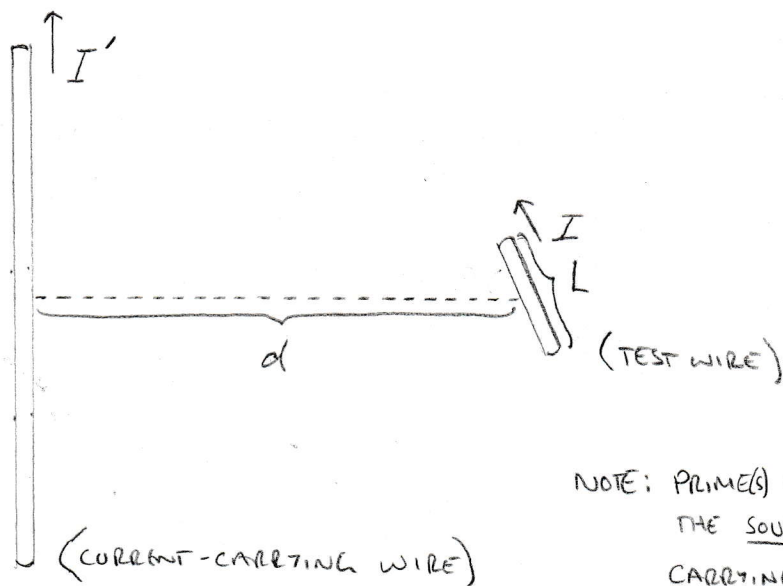 I′
I
L
d
(TEST WIRE)
NOTE: PRIME(S)
THE
CARRYING
(CURRENT-CARRYING WIRE)